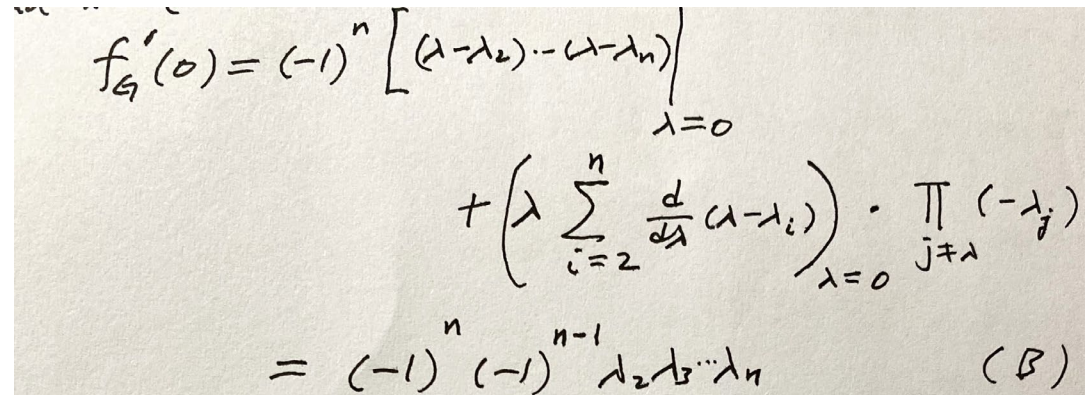 f_G'(0) = (-1)^n [ (λ-λ_2)··-(λ-λ_n) |_{λ=0}
+ ( λ \sum_{i=2}^{n} \frac{d}{dλ} (λ-λ_i) )_{λ=0} · \prod_{j≠λ} (-λ_j)
= (-1)^n (-1)^{n-1} λ_2 λ_3 ··· λ_n (B)